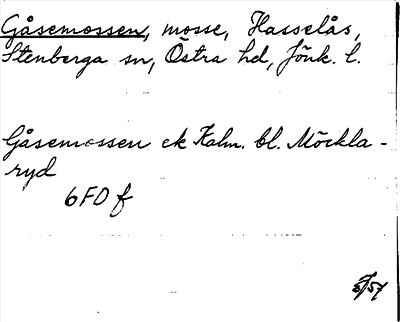 Gåsemossen, mosse, Hasselås,
Stenberga sn, Östra hd, Jönk. l.
Gåsemossen ek Kalm. bl. Möckla-
ryd
6FD f